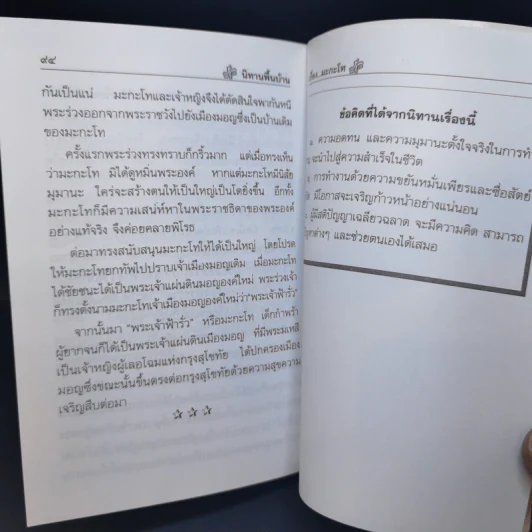 ๙๔
นิทานพื้นบ้าน
กันเป็นแน่ มะกะโทและเจ้าหญิงจึงได้ตัดสินใจพากันหนี
พระร่วงออกจากพระราชวังไปยังเมืองมอญซึ่งเป็นบ้านเดิม
ของมะกะโท
ครั้งแรกพระร่วงทรงทราบก็กริ้วมาก แต่เมื่อทรงเห็น
ว่ามะกะโท มิได้ดูหมิ่นพระองค์ หากแต่มะกะโทมีนิสัย
มุมานะ ใคร่จะสร้างตนให้เป็นใหญ่เป็นโตยิ่งขึ้น อีกทั้ง
มะกะโทก็มีความเสน่ห์หาในพระราชธิดาของพระองค์
อย่างแท้จริง จึงค่อยคลายพิโรธ
ต่อมาทรงสนับสนุนมะกะโทให้ได้เป็นใหญ่ โดยโปรด
ให้มะกะโทยกทัพไปปราบเจ้าเมืองมอญเดิม เมื่อมะกะโท
ได้ชัยชนะได้เป็นพระเจ้าแผ่นดินมอญองค์ใหม่ พระร่วงเจ้า
ก็ทรงตั้งนามมะกะโทเจ้าเมืองมอญองค์ใหม่ว่า"พระเจ้าฟ้ารั่ว"
จากนั้นมา "พระเจ้าฟ้ารั่ว" หรือมะกะโท เด็กกำพร้า
ผู้ยากจนก็ได้เป็นพระเจ้าแผ่นดินเมืองมอญ ที่มีพระมเหสี
เป็นเจ้าหญิงผู้เลอโฉมแห่งกรุงสุโขทัย ได้ปกครองเมือง
มอญซึ่งขณะนั้นขึ้นตรงต่อกรุงสุโขทัยด้วยความสุขความ
เจริญสืบต่อมา
มะกะโท
ข้อคิดที่ได้จากนิทานเรื่องนี้
ความอดทน และความมุมานะตั้งใจจริงในการทำ
จะนำไปสู่ความสำเร็จในชีวิต
การทำงานด้วยความขยันหมั่นเพียรและซื่อสัตย์
มีโอกาสจะเจริญก้าวหน้าอย่างแน่นอน
ผู้มีสติปัญญาเฉลียวฉลาด จะมีความคิด สามารถ
ต่างๆ และช่วยตนเองได้เสมอ